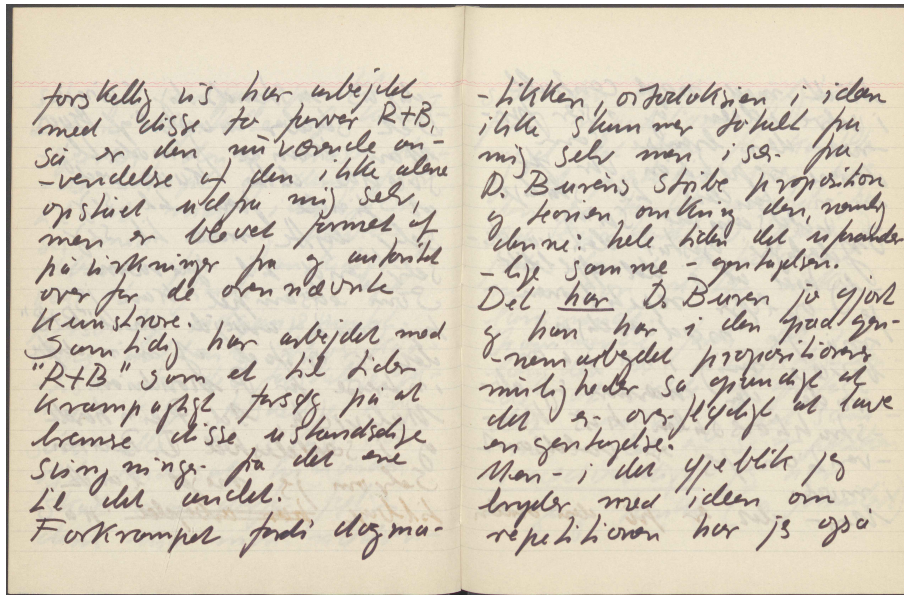 forskellig vis har arbejdet
med disse to farver R+B,
så er den nuværende an-
-vendelse af den ikke alene
opstået udfra mig selv,
men er blevet formet af
påvirkninger fra og antorität
over for de ovennævnte
kunstnere.
Samtidig har arbejdet med
"R+B" som et til tider
krampagtigt forsøg på at
bremse disse ustandselige
svingninger fra det ene
til det andet.
Forkrampet fordi dogma-
-tikken, ortodoksien i ideen
ikke stammer totalt fra
mig selv men især fra
D. Burens stribe proposition
og teorien omkring den, nemlig
denne: hele tiden det uforander
-lige samme - gentagelsen.
Det har D. Buren jo gjort
og han har i den grad gen-
-nemarbejdet propositionens
muligheder så grundigt at
det er overflødigt at lave
en gentagelse.
Men - i det øjeblik jeg
bryder med ideen om
repetitionen har jeg også